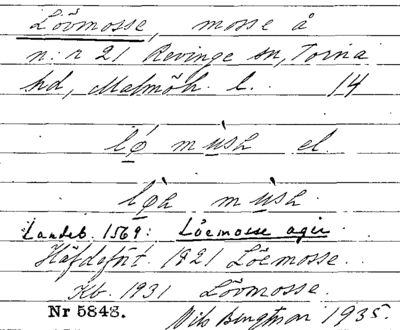 Lövmosse, mosse å
n:r 21 Revinge sn, Torna
hd, Malmöh. l. 14
lǿ mùsa el.
lǿa mùsa
Landeb. 1569: Löemosse ager
Häfdeför. 1821 Löemosse.
Kb. 1931 Lövmosse.
Nr 5848. Nils Bengtsson 1935.